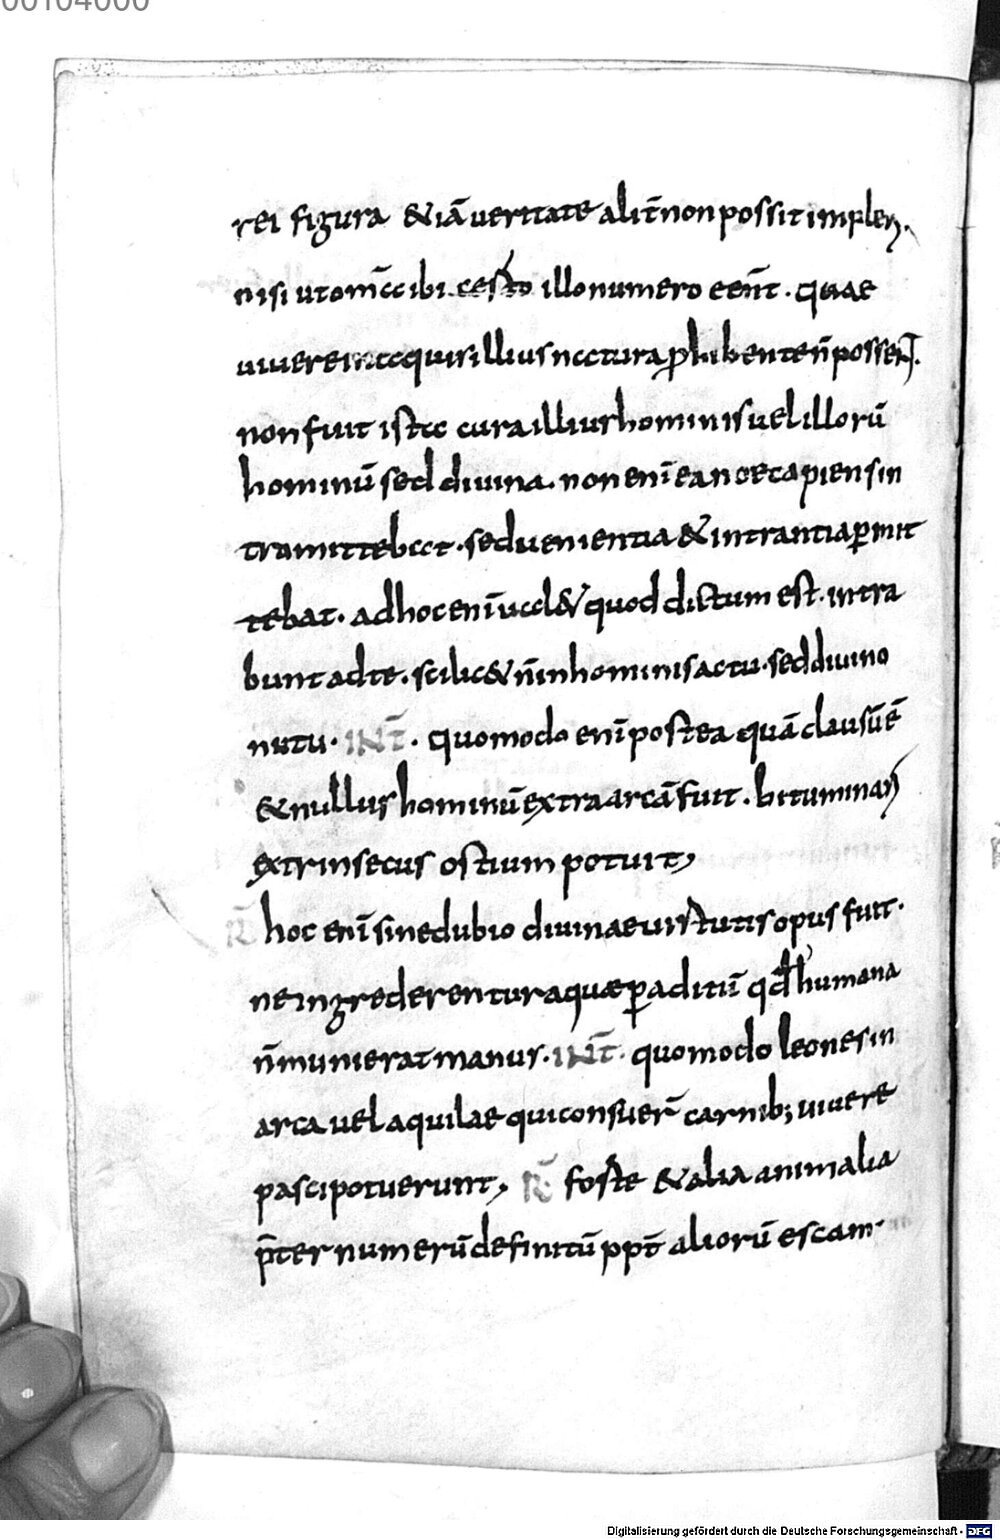 00104000
rei figura & iā veritate alit̄ non possit impleri,
nisi ut om̄a ibi certo illo numero eēnt. quae
vivere in aquis illius natura ꝓhibente n̄ possent.
non fuit ista cura illius hominis vel illorū
hominū sed divina. non enī ea noe capiens in
tramittebat. sed venientia & intrantia ꝑmit
tebat. ad hoc enī val& quod dictum est. intra
bunt ad te. scilic& n̄ in hominis actu. sed divino
nutu. INT̄. quomodo enī postea quā clausū ē
& nullus hominū extra arcā fuit. bituminari
extrinsecus ostium potuit,
R̄ hoc enī sine dubio divinae virtutis opus fuit.
ne ingrederentur aquæ ꝑ aditū qđ humana
n̄ munierat manus. INT̄. quomodo leones in
arca vel aquilae qui consuer̄ carnib; vivere
pasci potuerunt, R̄ foste & alia animalia
p̄ter numerū definitū ppt̄ aliorū escam.
Digitalisierung gefördert durch die Deutsche Forschungsgemeinschaft - DFG